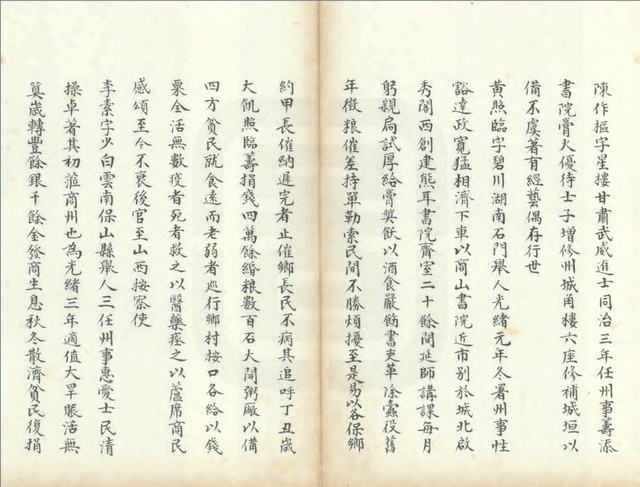 陳作樞字星樓甘肅武威進士同治三年任州事籌添
書院膏火優待士子增修州城角樓六座修補城垣以
備不虞著有經藝偶存行世
黃照臨字碧川湖南石門舉人光緒元年冬署州事性
豁達政寬猛相濟下車以商山書院近市別於城北啟
秀閣西創建熊耳書院齋室二十餘間延師講課每月
躬親局試厚給膏獎飫以酒食嚴飭書吏革除蠹役舊
年徵粮催差持單勒索民間不勝煩擾至是易以各保鄉
約甲長催納遲完者止催鄉長民不病其追呼丁丑歲
大飢照臨籌捐錢四萬餘緡粮數百石大開粥廠以備
四方貧民就食遠而老弱者巡行鄉村按口各給以錢
粟全活無數疫者死者救之以醫藥瘞之以蘆席商民
感頌至今不衰後官至山西按察使
李素字少白雲南保山縣舉人三任州事惠愛士民清
操卓著其初蒞商州也為光緒三年適值大旱賑活無
算歲轉豐餘銀千餘金發商生息秋冬散濟貧民復捐